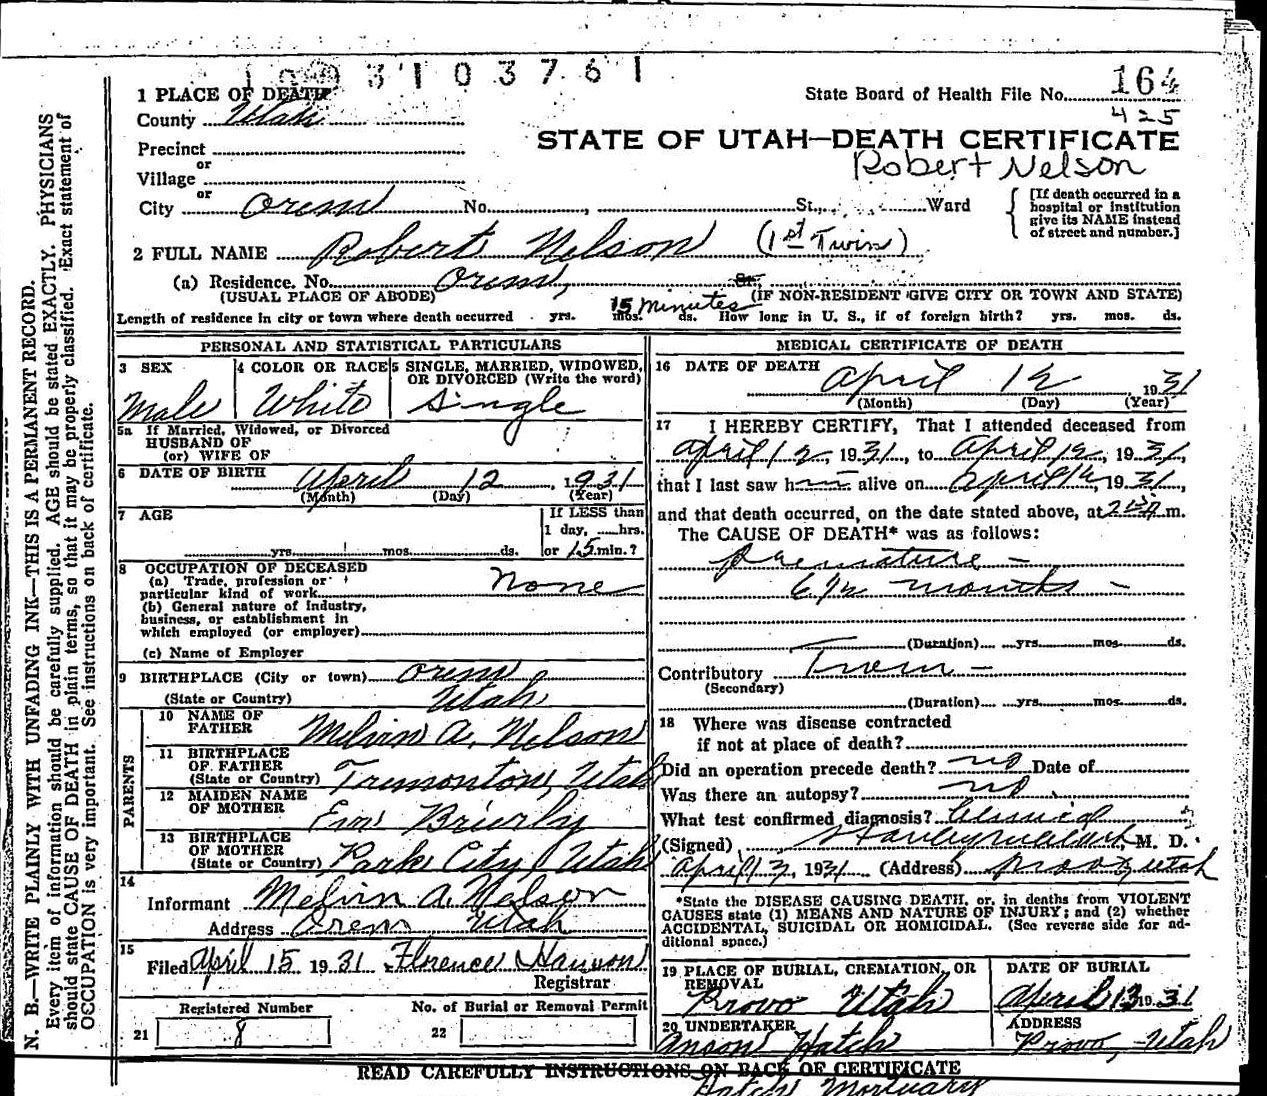 1 0 0 9 3 1 0 3 7 6 1
1 PLACE OF DEATH
State Board of Health File No. 164
County Utah
425
STATE OF UTAH—DEATH CERTIFICATE
Precinct
Robert Nelson
or
Village
or
City Orem No. , St., Ward
[If death occurred in a hospital or institution give its NAME instead of street and number.]
2 FULL NAME Robert Nelson (1st Twin)
(a) Residence. No. Orem, St.,
(USUAL PLACE OF ABODE) (IF NON-RESIDENT GIVE CITY OR TOWN AND STATE)
15 minutes
Length of residence in city or town where death occurred yrs. mos. ds. How long in U. S., if of foreign birth? yrs. mos. ds.
PERSONAL AND STATISTICAL PARTICULARS
3 SEX 4 COLOR OR RACE 5 SINGLE, MARRIED, WIDOWED,
OR DIVORCED (Write the word)
Male White Single
5a If Married, Widowed, or Divorced
HUSBAND OF
(or) WIFE OF
6 DATE OF BIRTH April 12, 1931
(Month) (Day) (Year)
7 AGE If LESS than
1 day, hrs.
yrs. mos. ds. or 15 min.?
8 OCCUPATION OF DECEASED
(a) Trade, profession or
particular kind of work None
(b) General nature of Industry,
business, or establishment in
which employed (or employer)
(c) Name of Employer
9 BIRTHPLACE (City or town) Orem
(State or Country) Utah
PARENTS
10 NAME OF
FATHER Melvin A. Nelson
11 BIRTHPLACE
OF FATHER
(State or Country) Tremonton, Utah
12 MAIDEN NAME
OF MOTHER Eva Brierly
13 BIRTHPLACE
OF MOTHER
(State or Country) Park City, Utah
14
Informant Melvin A. Nelson
Address Orem Utah
15
Filed April 15 1931 Florence Hanson
Registrar
Registered Number No. of Burial or Removal Permit
21 8 22
MEDICAL CERTIFICATE OF DEATH
16 DATE OF DEATH
April 12 1931
(Month) (Day) (Year)
17 I HEREBY CERTIFY, That I attended deceased from
April 12, 1931, to April 12, 1931,
that I last saw h alive on April 12, 1931,
and that death occurred, on the date stated above, at m.
The CAUSE OF DEATH* was as follows:
Premature —
6 1/2 months —
(Duration) yrs. mos. ds.
Contributory Twin —
(Secondary)
(Duration) yrs. mos. ds.
18 Where was disease contracted
if not at place of death?
Did an operation precede death? no Date of
Was there an autopsy? no
What test confirmed diagnosis? Clinical
(Signed) M. D.
April 13, 1931 (Address) Provo Utah
*State the DISEASE CAUSING DEATH, or, in deaths from VIOLENT
CAUSES state (1) MEANS AND NATURE OF INJURY; and (2) whether
ACCIDENTAL, SUICIDAL OR HOMICIDAL. (See reverse side for ad-
ditional space.)
19 PLACE OF BURIAL, CREMATION, OR
REMOVAL
Provo Utah
DATE OF BURIAL
April 13 1931
20 UNDERTAKER
Anson Hatch
ADDRESS
Provo, Utah
READ CAREFULLY INSTRUCTIONS ON BACK OF CERTIFICATE
Hatch Mortuary
N. B.—WRITE PLAINLY WITH UNFADING INK—THIS IS A PERMANENT RECORD.
Every item of information should be carefully supplied. AGE should be stated EXACTLY. PHYSICIANS
should state CAUSE OF DEATH in plain terms, so that it may be properly classified. Exact statement of
OCCUPATION is very important. See instructions on back of certificate.